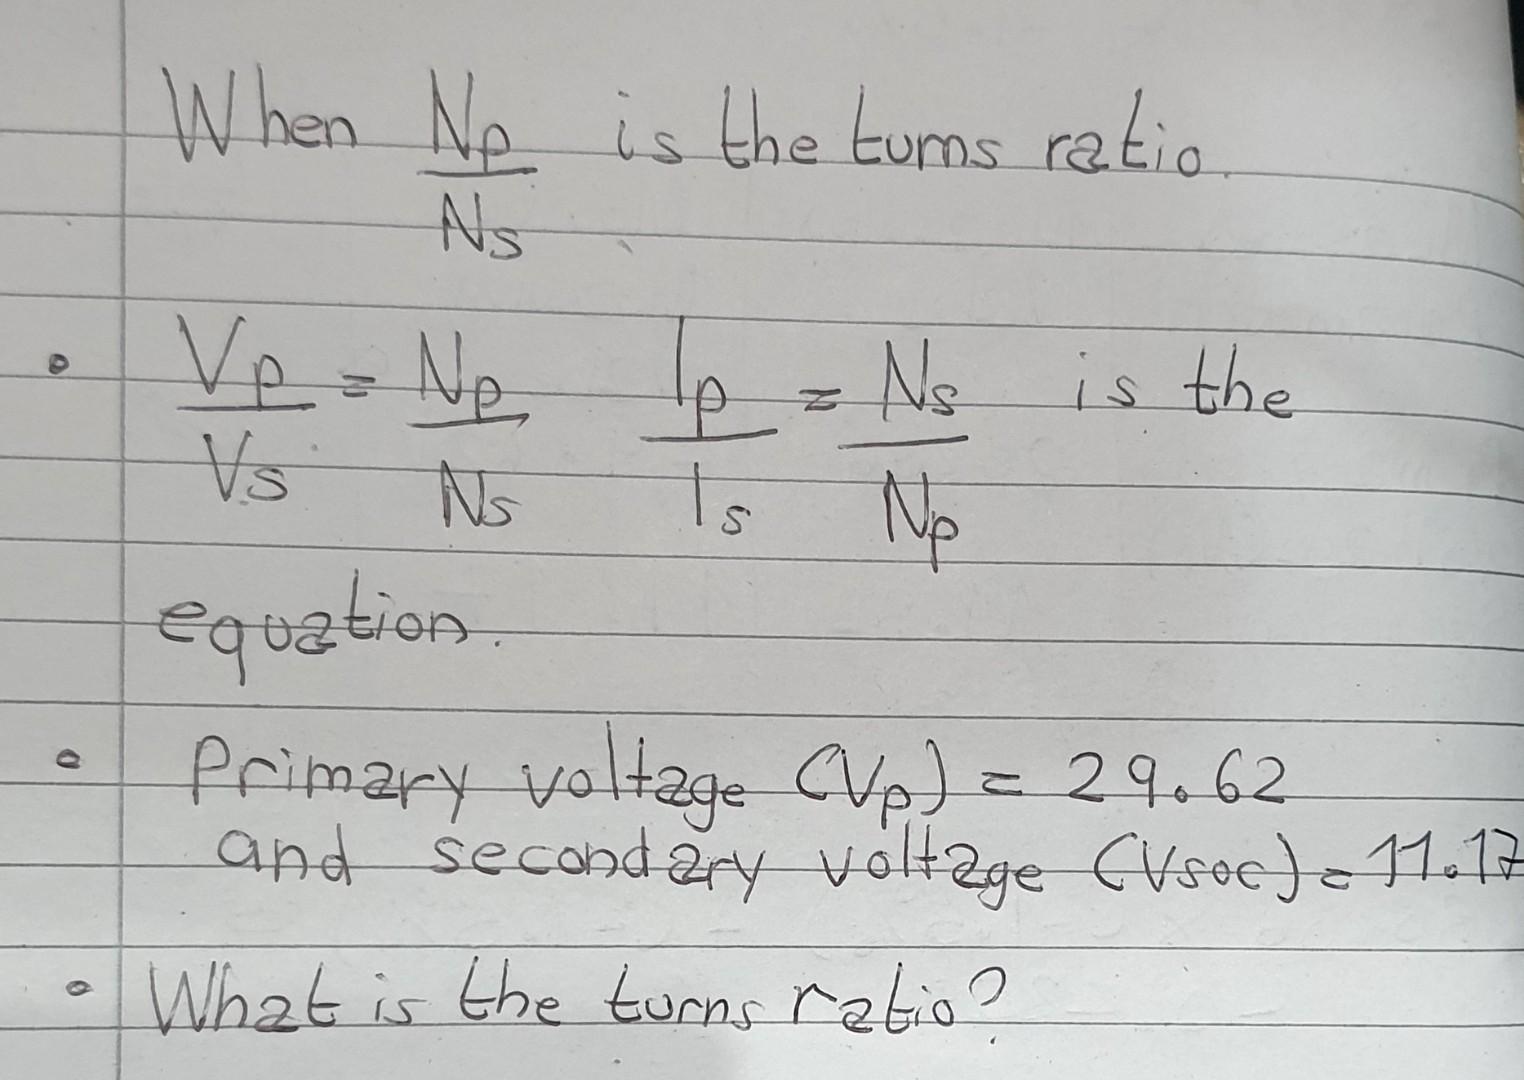 When Np/Ns is the turns ratio.
• Vp/Vs = Np/Ns Ip/Is = Ns/Np is the
equation.
• Primary voltage (Vp) = 29.62
and secondary voltage (Vsec) = 11.17
• What is the turns ratio?